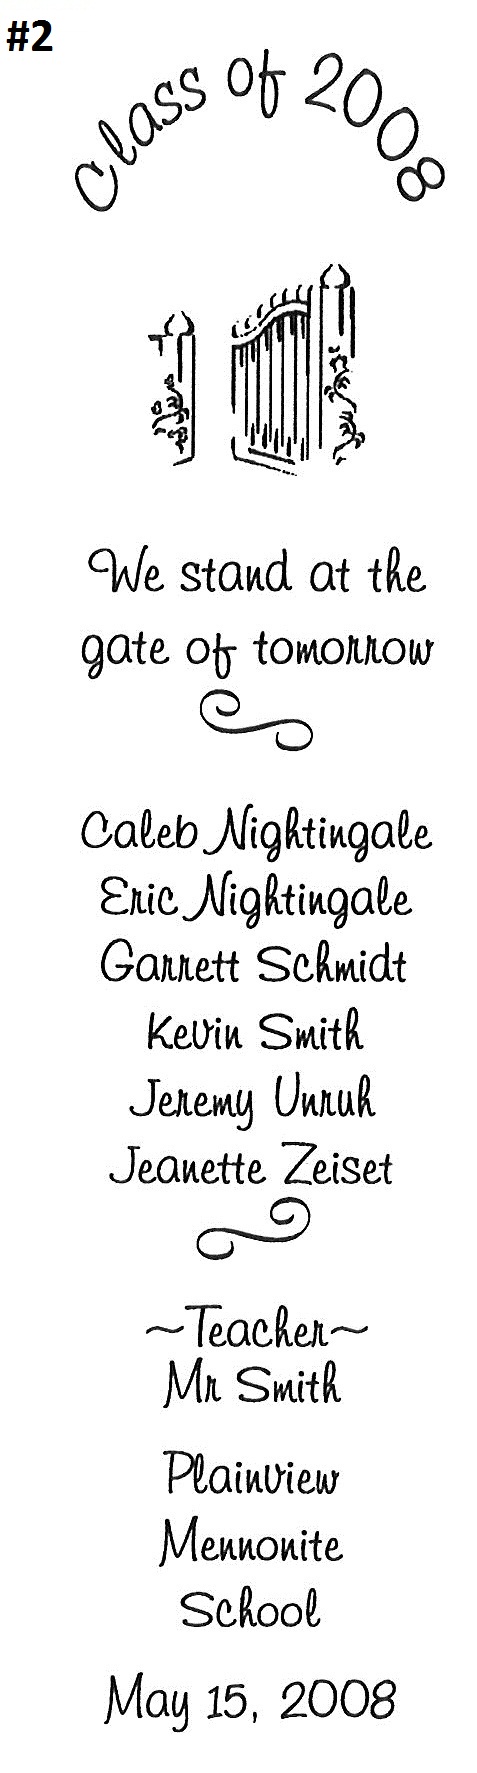 #2
Class of 2008
We stand at the
gate of tomorrow
Caleb Nightingale
Eric Nightingale
Garrett Schmidt
Kevin Smith
Jeremy Unruh
Jeanette Zeiset
~Teacher~
Mr Smith
Plainview
Mennonite
School
May 15, 2008